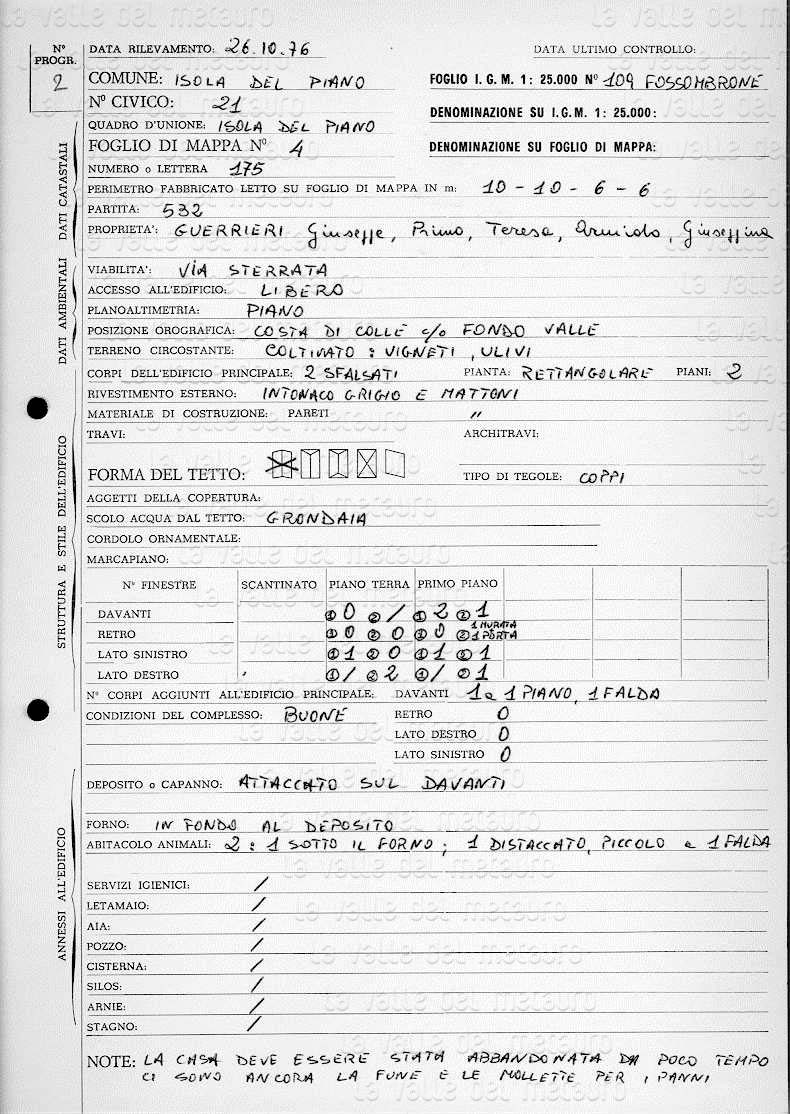 la valle del metauro
Nº PROGR. 2
DATA RILEVAMENTO: 26.10.76 DATA ULTIMO CONTROLLO:
COMUNE: ISOLA DEL PIANO FOGLIO I. G. M. 1: 25.000 Nº 109 FOSSOMBRONE
Nº CIVICO: 21 DENOMINAZIONE SU I.G.M. 1: 25.000:
QUADRO D'UNIONE: ISOLA DEL PIANO
FOGLIO DI MAPPA Nº 4 DENOMINAZIONE SU FOGLIO DI MAPPA:
NUMERO o LETTERA 175
PERIMETRO FABBRICATO LETTO SU FOGLIO DI MAPPA IN m: 10 - 10 - 6 - 6
PARTITA: 532
PROPRIETA': GUERRIERI Giuseppe, Primo, Teresa, Armido, Giuseppina
DATI CATASTALI
VIABILITA': VIA STERRATA
ACCESSO ALL'EDIFICIO: LIBERO
PLANOALTIMETRIA: PIANO
POSIZIONE OROGRAFICA: COSTA DI COLLE c/o FONDO VALLE
TERRENO CIRCOSTANTE: COLTIVATO : VIGNETI, ULIVI
DATI AMBIENTALI
CORPI DELL'EDIFICIO PRINCIPALE: 2 SFALSATI PIANTA: RETTANGOLARE PIANI: 2
RIVESTIMENTO ESTERNO: INTONACO GRIGIO E MATTONI
MATERIALE DI COSTRUZIONE: PARETI "
TRAVI: ARCHITRAVI:
FORMA DEL TETTO: TIPO DI TEGOLE: COPPI
AGGETTI DELLA COPERTURA:
SCOLO ACQUA DAL TETTO: GRONDAIA
CORDOLO ORNAMENTALE:
MARCAPIANO:
Nº FINESTRE SCANTINATO PIANO TERRA PRIMO PIANO
DAVANTI ① 0 ② / ① 2 ② 1
RETRO ① 0 ② 0 ① 0 ② 1 MURATA 1 PORTA
LATO SINISTRO ① 1 ② 0 ① 1 ② 1
LATO DESTRO ① / ② 2 ① / ② 1
STRUTTURA E STILE DELL'EDIFICIO
Nº CORPI AGGIUNTI ALL'EDIFICIO PRINCIPALE: DAVANTI 1 a 1 PIANO, 1 FALDA
CONDIZIONI DEL COMPLESSO: BUONE RETRO 0
LATO DESTRO 0
LATO SINISTRO 0
DEPOSITO o CAPANNO: ATTACCATO SUL DAVANTI
FORNO: IN FONDO AL DEPOSITO
ABITACOLO ANIMALI: 2 : 1 SOTTO IL FORNO ; 1 DISTACCATO, PICCOLO a 1 FALDA
SERVIZI IGIENICI: /
LETAMAIO: /
AIA: /
POZZO: /
CISTERNA: /
SILOS: /
ARNIE: /
STAGNO: /
ANNESSI ALL'EDIFICIO
NOTE: LA CASA DEVE ESSERE STATA ABBANDONATA DA POCO TEMPO
CI SONO ANCORA LA FUNE E LE MOLLETTE PER I PANNI